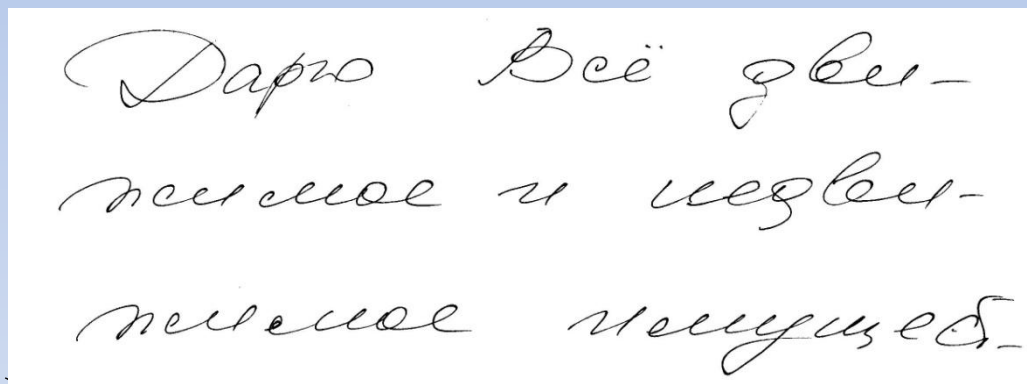 Дарю Всё дви-
жимое и недви-
жимое имущест-